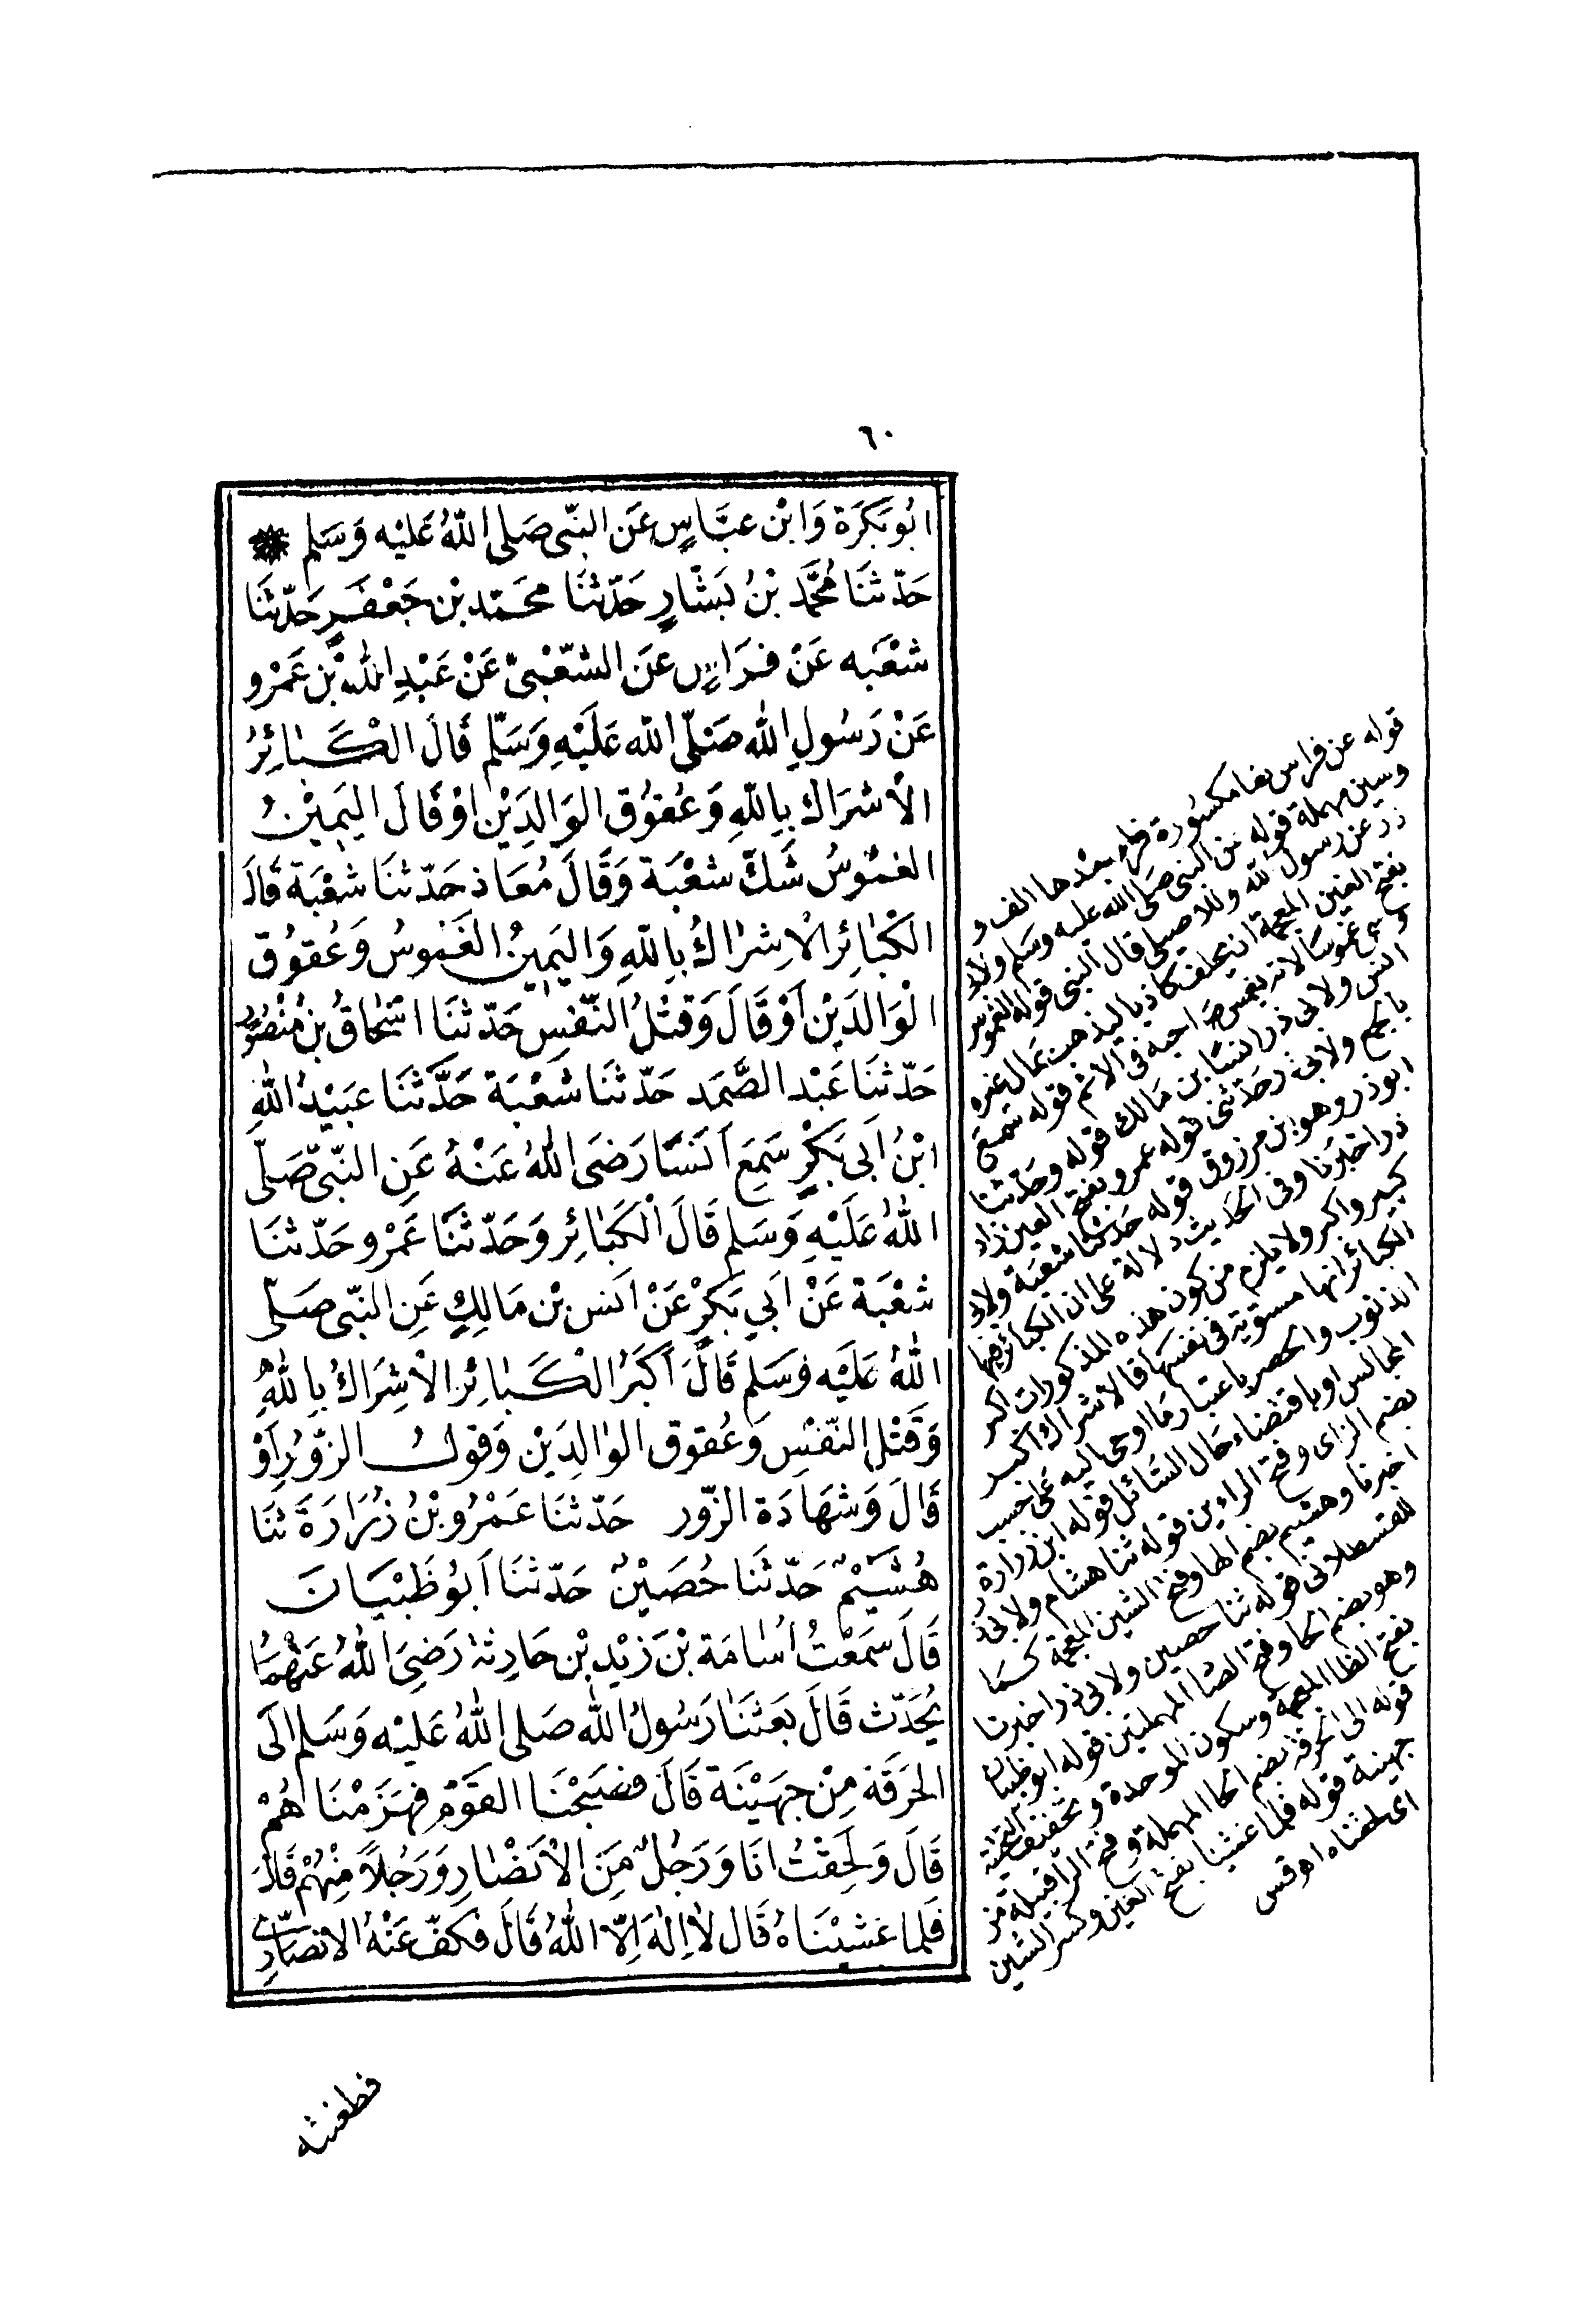 ٦٠
ابُو بَكرَة وَابْن عبَّاسٍ عَن النبّى صَلى اللهُ عَليْه وَسَلم
حَدّثنَا مُحمَّد بْنُ بَشّارٍ حَدّثنَا محمَّد بْن جَعْفَرٍ حَدّثنَا
شعْبَه عَنْ فرَاسٍ عَن الشّعْبىّ عَنْ عَبْدِ اللهْ بْن عَمْرو
عَنْ رَسُولِ الله صَلّى الله عَلَيْهِ وَسَلّم قَالَ الكَبَائِرُ
الاْشرَاك بِاللّهِ وَعُقوُق الوَالدَيْن اوْ قَالَ اليَميْنُ
الغمُوسُ شَكّ شعْبَة وَقَالَ مُعَاذ حَدّثنَا شعْبَة قَالَ
الكَبٰائر الاشِرٰاكُ بِاللّهِ وَاليَمِينُ الغَموسُ وَعُقوُق
الْوَالدَيْن أوْ قَالَ وَقتْلُ النّفْسِ حَدّثنَا اسْحٰاقُ بْن مَنْصُورٍ
حَدّثنَا عَبْد الصَّمَد حَدّثنَا شعْبَة حَدَّثَنَا عبَيْدُ اللهِ
ابْنُ اَبى بَكْرٍ سَمِعَ اَنَسًا رَضىَ اللهُ عَنْهُ عَنِ النّبىّ صَلّى
اللهُ عَلَيْهِ وَسَلم قَالَ الْكَبٰائر وَحَدّثنَا عَمْرو حَدّثنَا
شعْبَة عَنْ ابَي بَكرٍ عَنْ انَس بْن مَالكٍ عَنِ النبّى صَلّى
اللهُ عَليَه وَسَلم قَالَ اَكبَرُ الكَبٰائر الاْشِرَاكُ بِاللهِ
وَقَتْل النفْسِ وَعُقوق الوٰالدِيَنْ وَقولُ الزّوُرِ اَوْ
قَالَ وَشهَادَة الزّور حَدّثنَا عَمْرُو بْنُ زُرَارَةَ ثنَا
هُشيْمٌ حَدّثَنا حُصَيْنٌ حَدّثنَا اَبوُ ظَبْيَانَ
قَالَ سَمعْتُ اُسٰامَة بْنَ زَيْد بْن حَارِثَة رَضِىَ اللهُ عَنْهُمَا
يُحَدّث قَالَ بَعَثَنٰا رَسُولُ الله صَلى اللهُ عَليْه وَسَلم الَى
الحُرَقَة مِنْ جهَيْنَة قَالَ فصَبَّحْنَا القَوْمَ فهَزَمْنَا هُمْ
قَالَ وَلَحِقْتُ انَا وَرَجُلٌ مِنَ الاْنَصْارِ وَرَجُلاً مِنْهُمْ قَالَ
فَلما غشيْنَاهُ قَال لاٰ اِلٰهَ اِلاّ اللهُ قَالَ فكَفّ عَنْهُ الانصَارِىّ
فطعنته
قوله عن فراس بفا مكسورة فراء بعدها الف و
وسين مهملة قوله عن النبى صلى الله عليه وسلم ولابى
ذر عن رسول الله وللاصيلى قال النبى قوله الغموس
بفتح الغين المعجمة ان يحلف كاذبا ليذهب بمال غيره
وسمى غموسا لانه يغمس صاحبه فى الاثم قوله سمع
انس ولابى ذر انسا بن مالك قوله وحدثنا
بالجمع ولابى ذر حدثنى قوله عمرو بفتح العين زاد
ابو ذر وهو ابن مرزوق قوله حدثنا شعبة ولابى
ذر اخبرنا وفى الحديث دلالة على ان الكبائر فيها
كبير واكبر ولا يلزم من كون هذه المذكورات اكبر
الكبائر انها مستوية فى نفسها فالاشراك اكبر
الذنوب والحصر باعتبار ما اوحى اليه على حسب
المجالس او باقتضاء حال السائل قوله ابن زرارة
بضم الزاى وفتح الراءين قوله ثنا هشام ولابى ذر
اخبرنا وهشيم بضم الها وفتح الشين المعجمة كما
للقسطلانى قوله ثنا حصين ولابى ذر اخبرنا
وهو بضم الحا وفتح الصا المهملتين قوله ابو ظبيان
بفتح الظا المعجمة وسكون الموحدة وتخفيف التحتية
قوله الى الحرقة بضم الحا المهملة وفتح الرا قبيلة من
جهينة قوله فلما غشينا بفتح الغين وكسر الشين
اى لحقناه اهـ قس